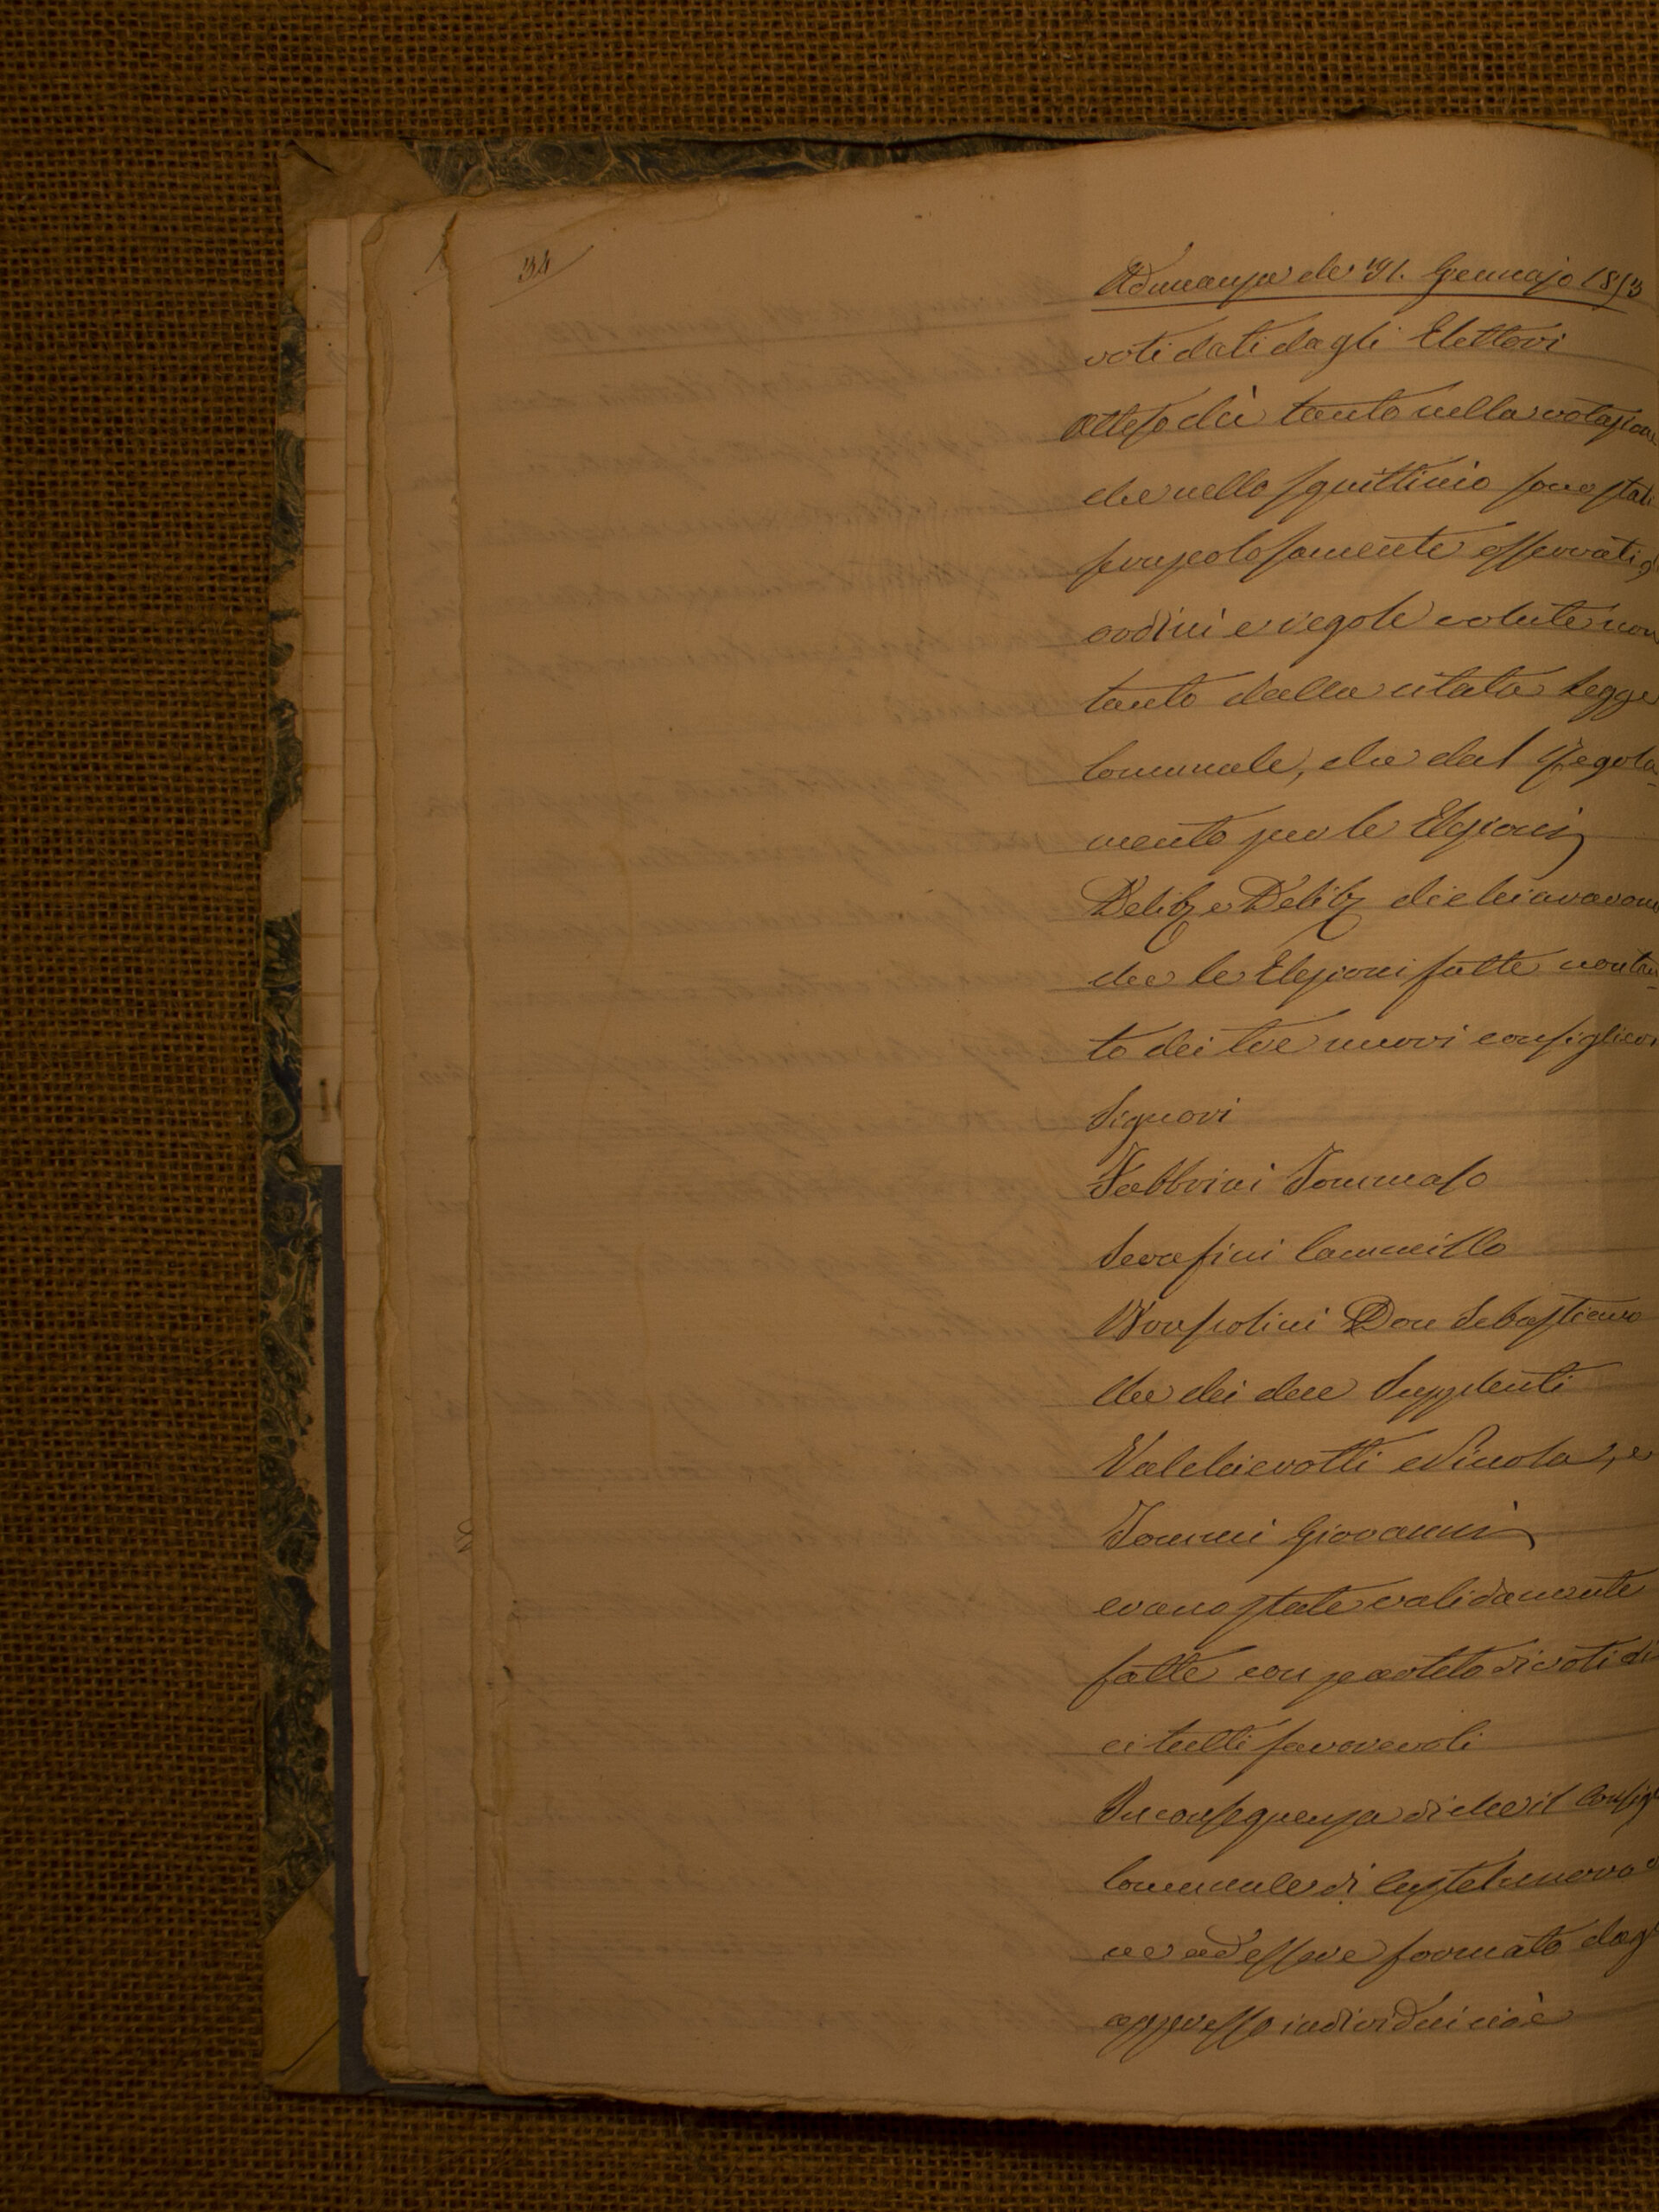 34
Adunanza de 31. Gennajo 1853
voti dati dagli Elettori
Atteso chè tanto nella votazione
che nello squittinio sono stati
scrupolosamente osservati gl
ordini e regole volute non
tanto dalla citata Legge
Comunale, che dal Regola-
mento per le Elezioni
Delib e Delib dichiararono
che le Elezioni fatte non tan-
to dei tre nuovi consiglieri
Signori
Fabbrini Tommaso
Serafini Cammillo
Don Sebastiano
che dei due Supplenti
Valchierotti Nicola, e
Tommi Giovanni
erano state validamente
fatte con partito di voti di
ci tutti favorevoli
In conseguenza di che il Consig
Comunale di Castelnuovo
ne ad essere formato dag
appresso individui cioè